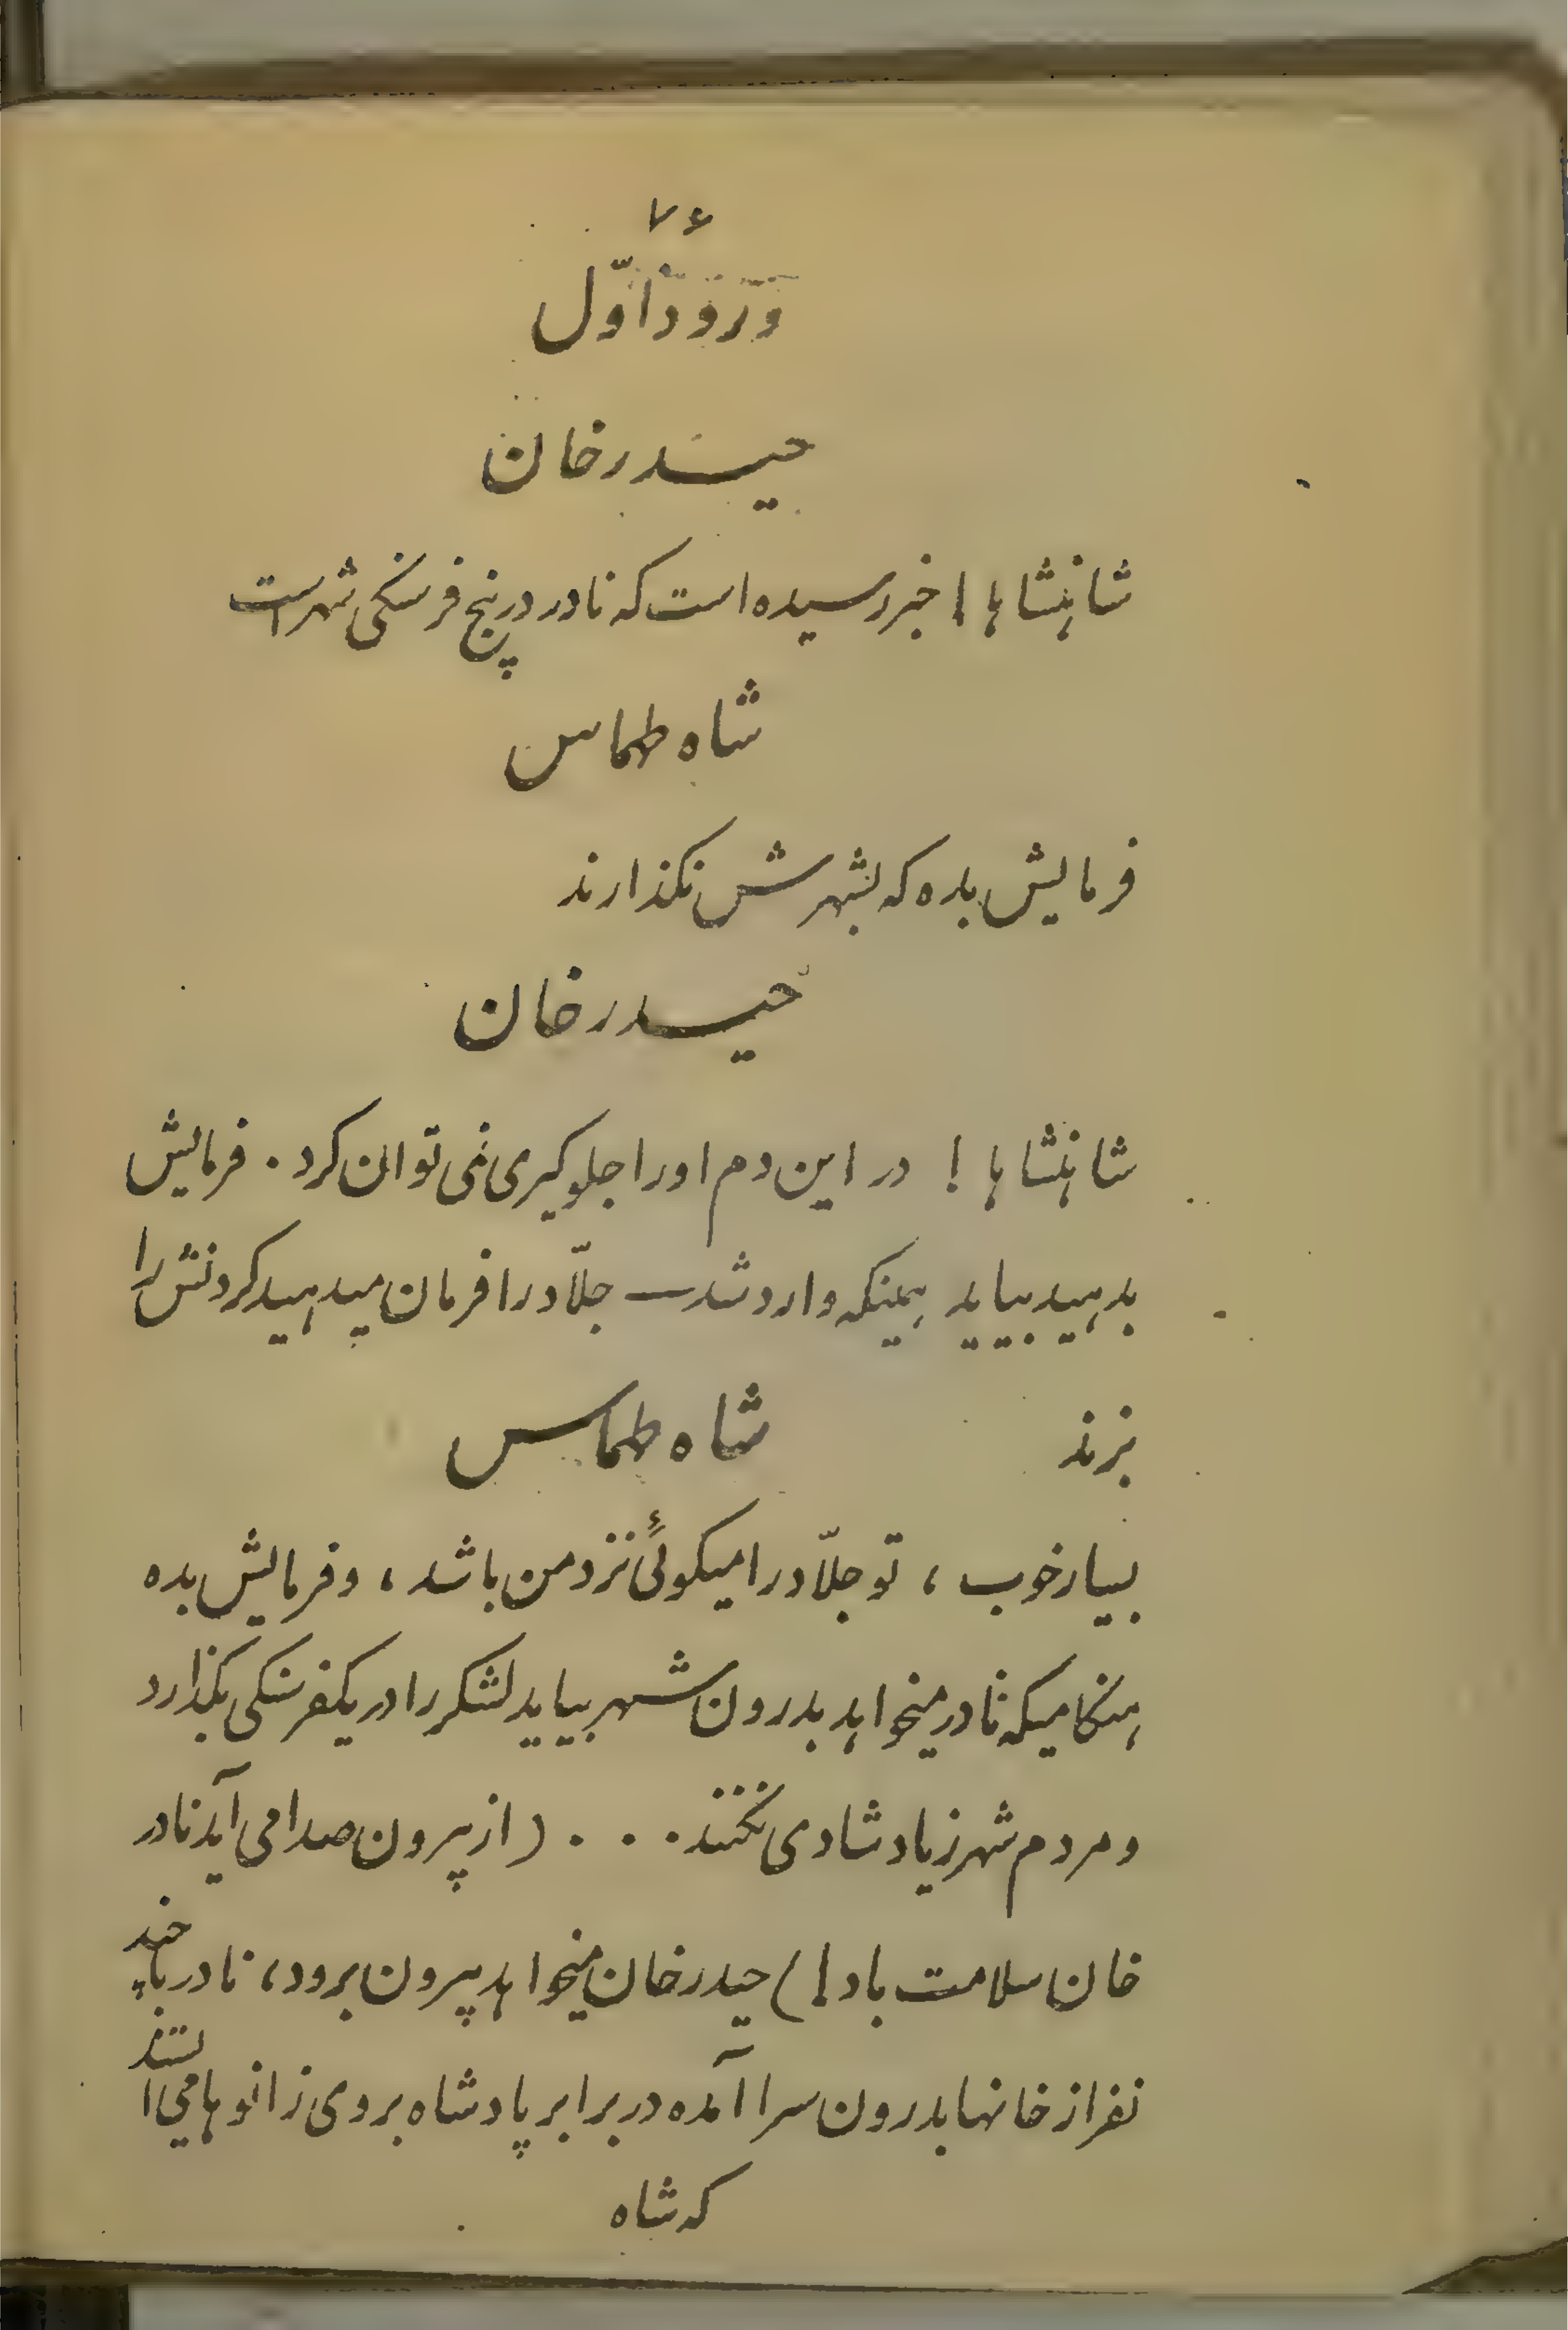 ۷۶
ورود اوّل
حیدرخان
شاهنشاها! خبر رسیده است که نادر در پنج فرسنکی شهر است
شاه طهماس
فرمایش بده که بشهرش نکذارند
حیدرخان
شاهنشاها! در این دم اورا جلوکیری نمی توان کرد. فرمایش
بدهید بیاید همینکه وارد شد جلّاد را فرمان میدهید کردنش را
بزند شاه طهماس
بسیار خوب، تو جلّاد را میکوئی نزد من باشد، و فرمایش بده
هنکامیکه نادر میخواهد بدرون شهر بیاید لشکر را در یکفرسنکی بکذارد
و مردم شهر زیاد شادی نکنند . . . (از بیرون صدا می آید نادر
خان سلامت باد!) حیدرخان میخواهد بیرون برود، نادر با چند
نفر از خانها بدرون سرا آمده در برابر پادشاه بروی زانوها می ایستند
که شاه